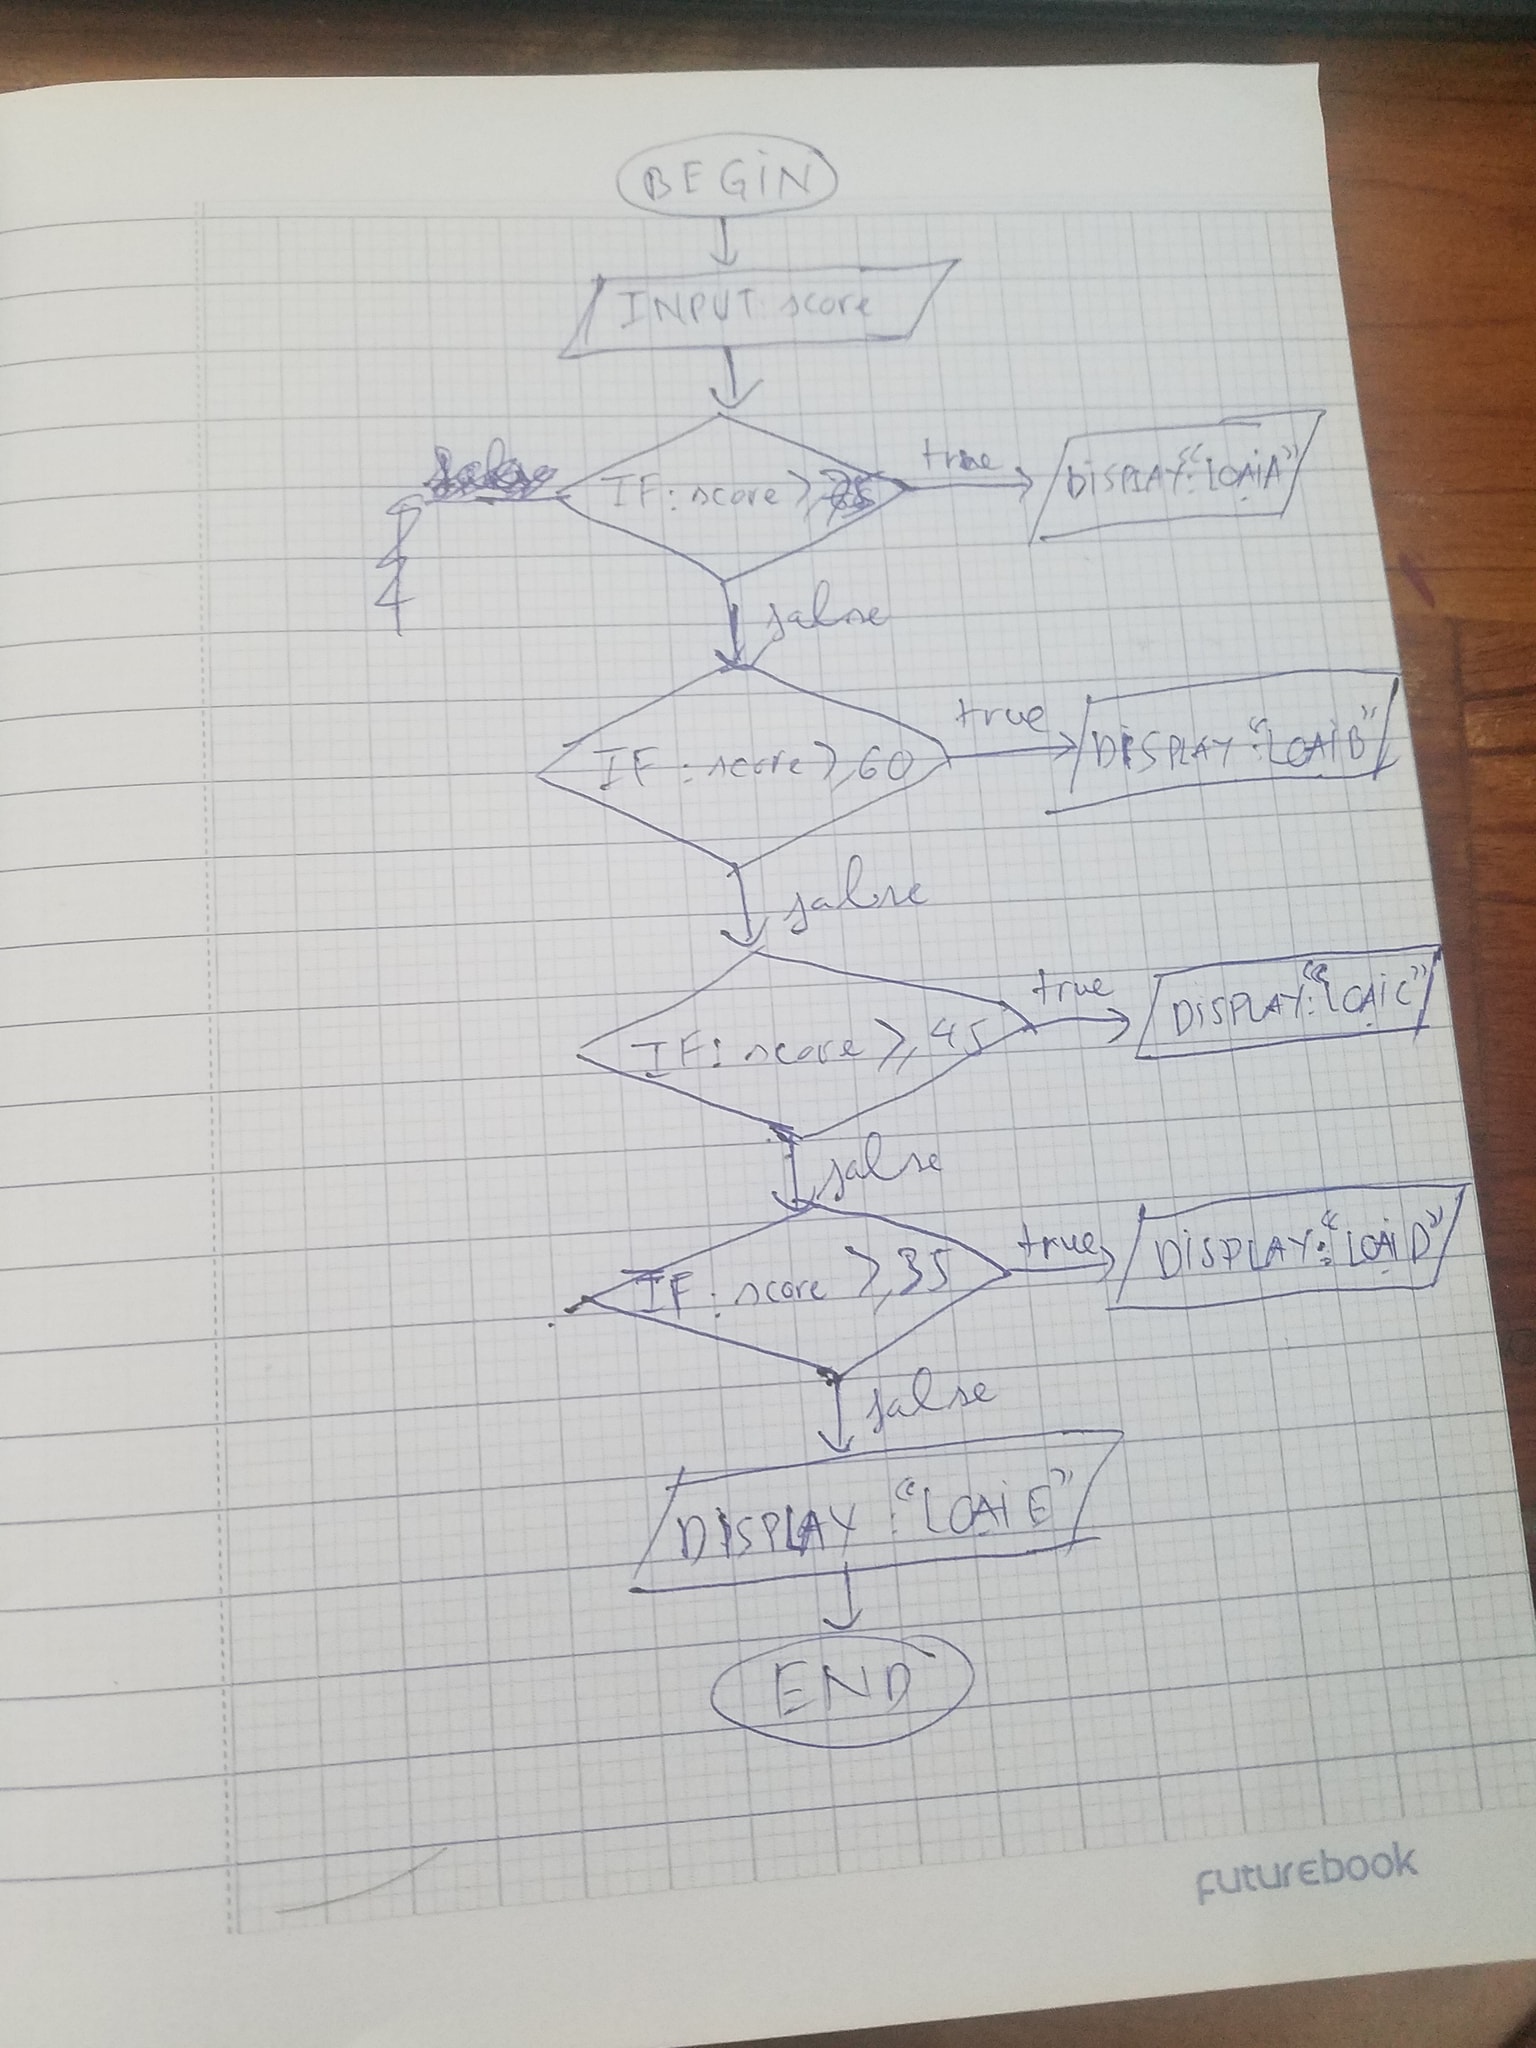 BEGIN
INPUT: score
IF: score ≥ 75
true
DISPLAY: "LOẠI A"
false
IF: score ≥ 60
true
DISPLAY: "LOẠI B"
false
IF: score ≥ 45
true
DISPLAY: "LOẠI C"
false
IF: score ≥ 35
true
DISPLAY: "LOẠI D"
false
DISPLAY: "LOẠI E"
END
futurebook